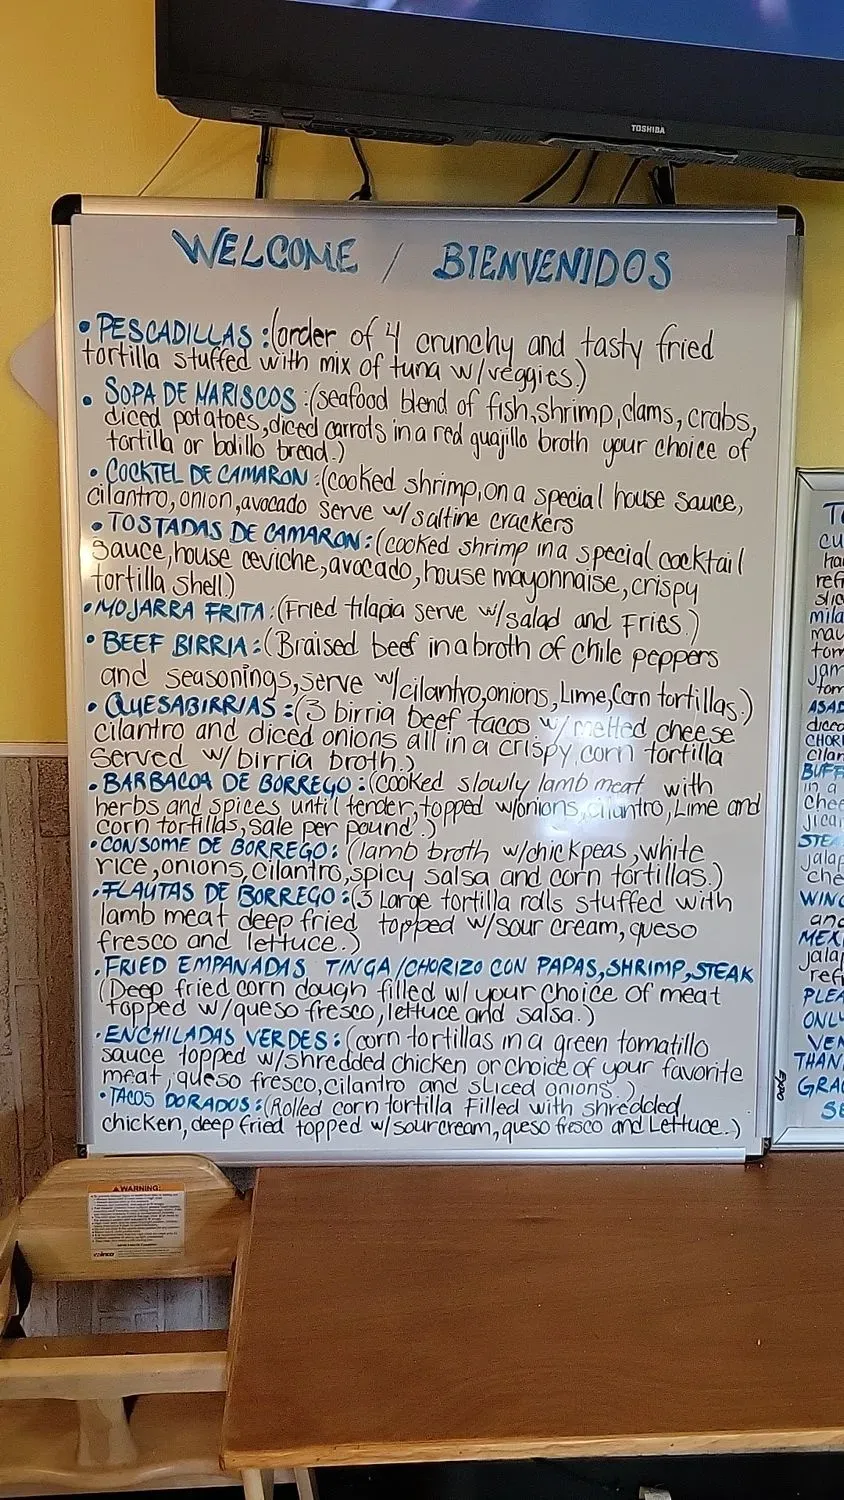 TOSHIBA
WELCOME / BIENVENIDOS
• PESCADILLAS :(order of 4 crunchy and tasty fried
tortilla stuffed with mix of tuna w/veggies.)
• SOPA DE MARISCOS :(seafood blend of fish,shrimp,clams,crabs,
diced potatoes,diced carrots in a red guajillo broth your choice of
tortilla or bolillo bread.)
• COCKTEL DE CAMARON :(cooked shrimp,on a special house sauce,
cilantro,onion,avocado serve w/saltine crackers
• TOSTADAS DE CAMARON:(cooked shrimp in a special cocktail
sauce,house ceviche,avocado,house mayonnaise,crispy
tortilla shell)
•MOJARRA FRITA:(Fried tilapia serve w/salad and Fries.)
• BEEF BIRRIA:(Braised beef in a broth of chile peppers
and seasonings,serve w/cilantro,onions,Lime,Corn tortillas.)
• QUESABIRRIAS :(3 birria beef tacos w/melted cheese
cilantro and diced onions all in a crispy corn tortilla
served w/birria broth.)
•BARBACOA DE BORREGO:(cooked slowly lamb meat with
herbs and spices until tender,topped w/onions,cilantro,Lime and
corn tortillas,sale per pound.)
•CONSOME DE BORREGO: (lamb broth w/chickpeas,white
rice,onions,cilantro,spicy salsa and corn tortillas.)
•FLAUTAS DE BORREGO:(3 Large tortilla rolls stuffed with
lamb meat deep fried topped w/sour cream,queso
fresco and lettuce.)
•FRIED EMPANADAS TINGA/CHORIZO CON PAPAS,SHRIMP,STEAK
(Deep fried corn dough filled w/ your choice of meat
topped w/queso fresco,lettuce and salsa.)
•ENCHILADAS VERDES:(corn tortillas in a green tomatillo
sauce topped w/shredded chicken or choice of your favorite
meat,queso fresco,cilantro and sliced onions.)
•TACOS DORADOS:(Rolled corn tortilla Filled with shredded
chicken,deep fried topped w/sourcream,queso fresco and Lettuce..)
expo
WARNING:
winco